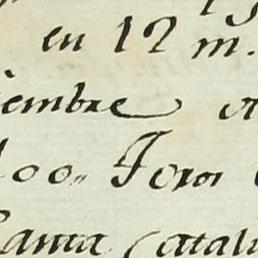 en 12 m.
iembre
400„ Toros
Santa Catali